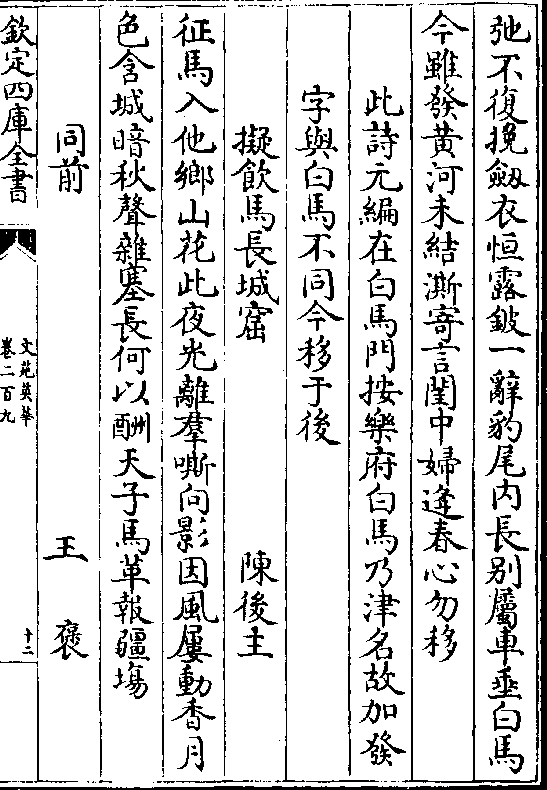 弛不復挽劔衣恒露鈹一辭豹尾内長别屬車垂白馬
今雖發黄河未結澌寄言閨中婦逢春心勿移
此詩元編在白馬門按樂府白馬乃津名故加發
字與白馬不同今移于後
擬飲馬長城窟　陳後主
征馬入他鄉山花此夜光離羣嘶向影因風屢動香月
色含城暗秋聲雜塞長何以酬天子馬革報疆塲
同前　王褒
欽定四庫全書
文苑英華
卷二百九
十二